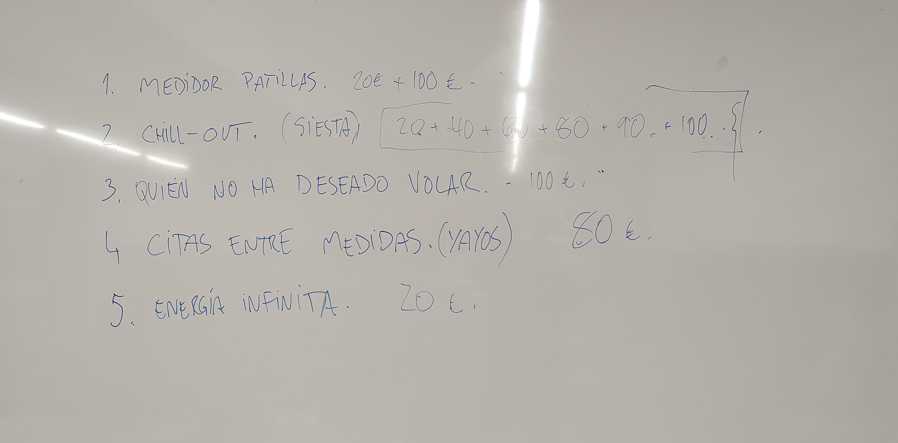 1. MEDIDOR PATILLAS. 20€ + 100 €.
2. CHILL-OUT. (SIESTA) 20 + 40 + 60 + 80 + 90. + 100...
3. QUIÉN NO HA DESEADO VOLAR. - 100 €.
4 CITAS ENTRE MEDIDAS. (YAYOS) 80 €.
5. ENERGÍA INFINITA. 20 €.